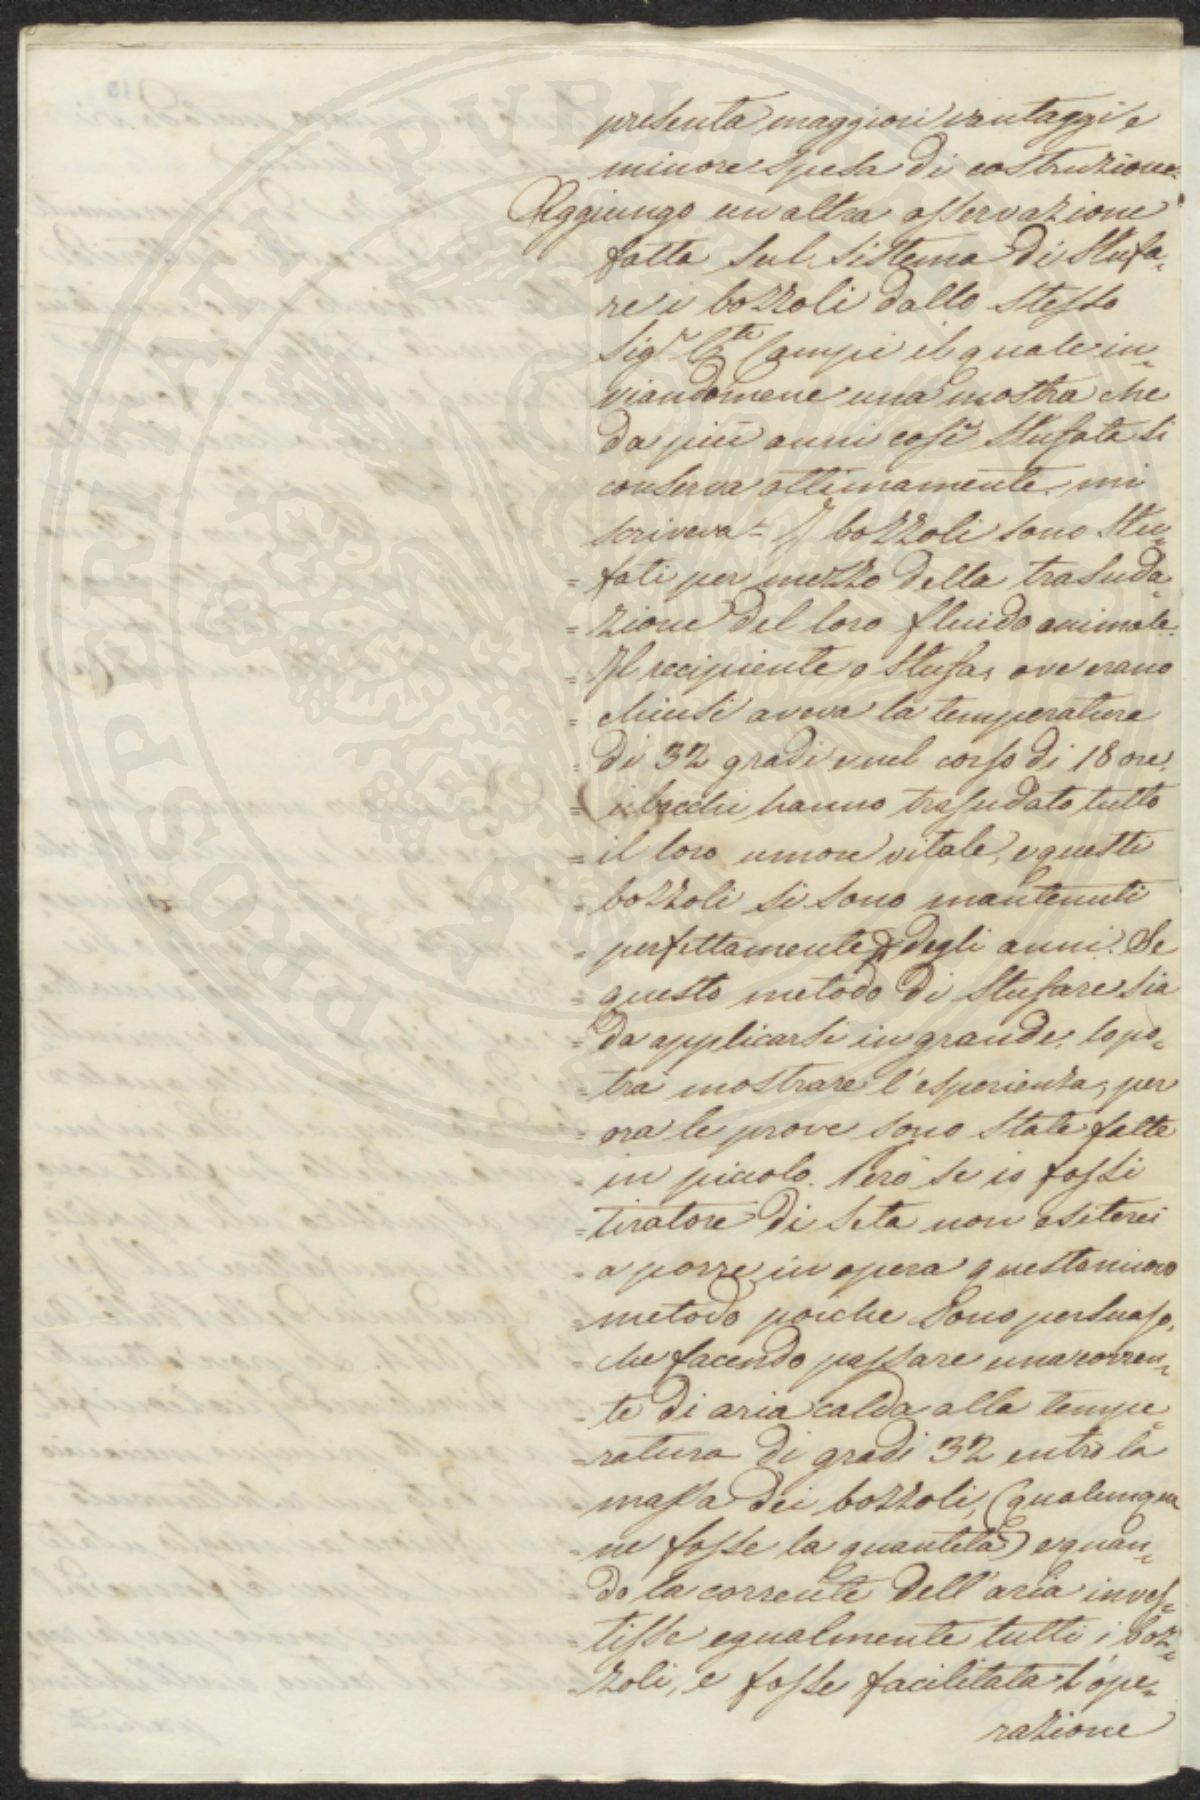 presenta maggiori vantaggi e
minore spesa di costruzione.
Aggiungo un altra osservazione
fatta sul sistema di stufa=
re i bozzoli dallo stesso
Sigr Cte Campi il quale in=
viandomene una mostra che
da più anni così stufata si
conserva ottimamente mi
scriveva = I bozzoli sono stu=
= fati per mezzo della trasuda
= zione del loro fluido animale.
= Il recipiente o stufa, ove erano
= chiusi aveva la temperatura
= di 32 gradi e nel corso di 18 ore,
= i bacchi hanno trasudato tutto
= il loro umore vitale, e questi
= bozzoli si sono mantenuti
= perfettamente degli anni. Se
= questo metodo di stufare sia
= da applicarsi in grande, lo po=
= trà mostrare l'esperienza, per
= ora le prove sono state fatte
= in piccolo. Però se io fossi
= tiratore di seta non esiterei
= a porre in opera questo nuovo
= metodo poiche sono persuaso,
= che facendo passare una corren=
= te di aria calda alla tempe=
= ratura di gradi 32 entro la
= massa dei bozzoli, (qualunque
= ne fosse la quantità) e quan=
= do la corrente dell'aria inves=
= tisse egualmente tutti i boz=
= zoli, e fosse facilitata l'ope=
razione
PROSPERITATI PUBLICAE